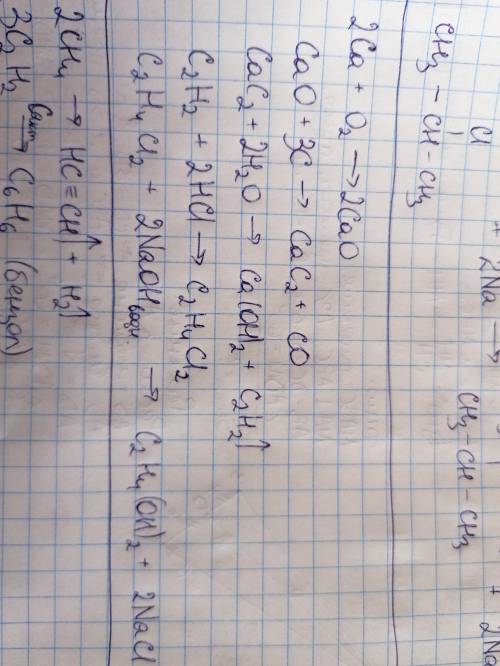 Cl
CH3 - CH - CH3 + 2Na → CH3 - CH - CH3 + 2Na
2Ca + O2 → 2CaO
CaO + 3C → CaC2 + CO
CaC2 + 2H2O → Ca(OH)2 + C2H2↑
C2H2 + 2HCl → C2H4Cl2
C2H4Cl2 + 2NaOH водн → C2H4(OH)2 + 2NaCl
2CH4 → HC≡CH↑ + H2↑
3C2H2 Cакт → C6H6 (бензол)